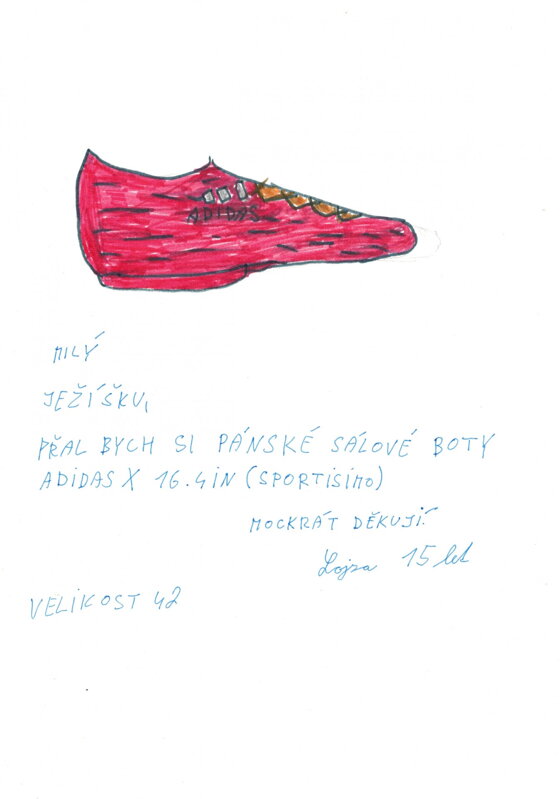 ADIDAS
MILÝ
JEŽÍŠKU,
PŘAL BYCH SI PÁNSKÉ SÁLOVÉ BOTY
ADIDAS X 16.4iN (SPORTiSiMO)
MOCKRÁT DĚKUJI!
Lojza 15 let
VELIKOST 42